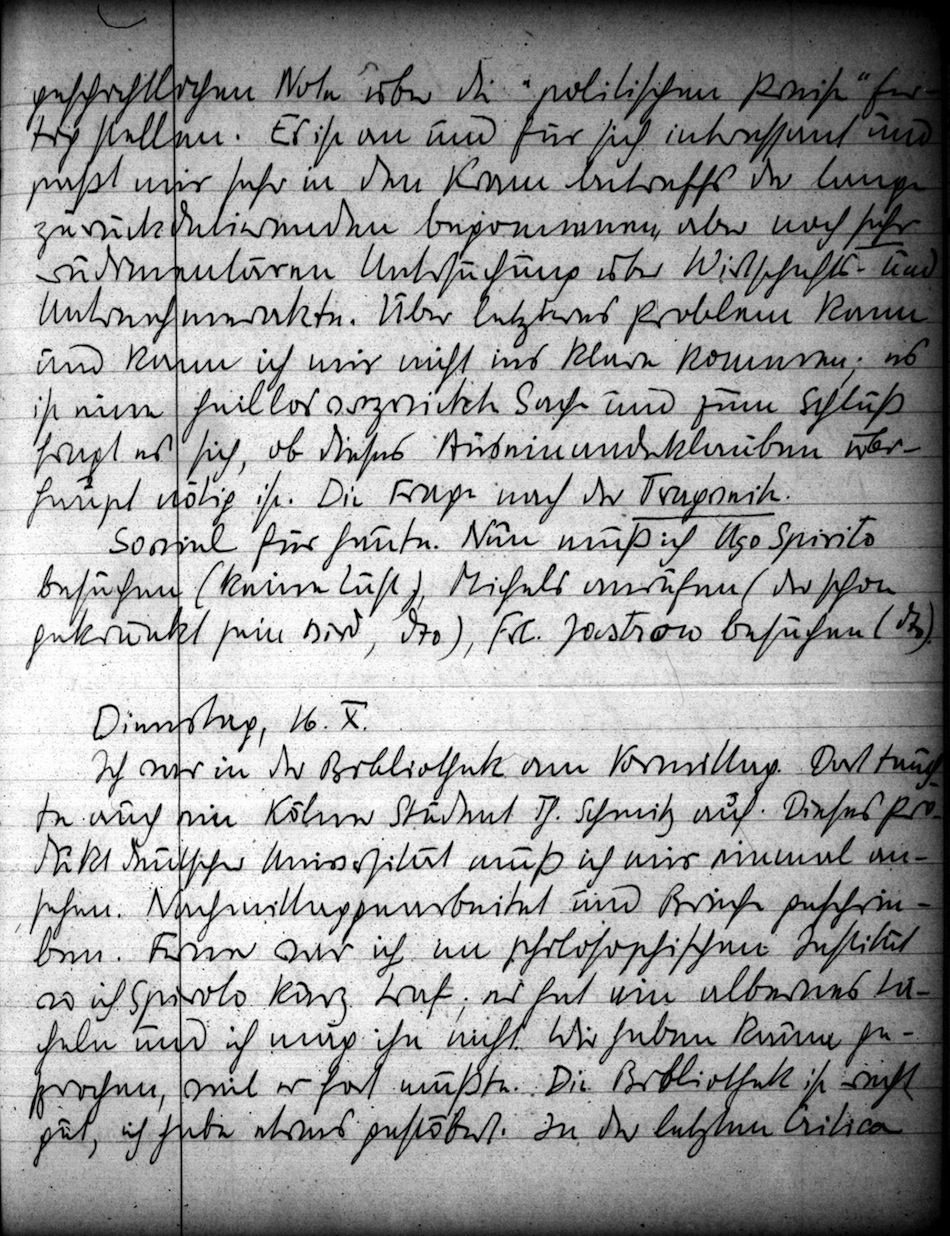 geschichtlichen Note über die "politischen Preise" fer-
tig stellen. Es ist an und für sich interessant und
paßt mir sehr in den Kram betreffs der lange
zurückdatierenden begonnenen, aber noch sehr
rudimentären Untersuchung über Wirtschafts- und
Unternehmerakte. Über letzteres Problem kann
und kann ich mir nicht ins Klare kommen; es
ist eine heillos verzwickte Sache und zum Schluß
fragt es sich, ob dieses Auseinanderklauben über-
haupt nötig ist. Die Frage nach der Tragweite.
Soviel für heute. Nun muß ich Ugo Spirito
besuchen (keine Lust), Michels anrufen (der schon
gekränkt sein wird, dto), Frl. Jastrow besuchen (dto).
Dienstag, 16. X.
Ich war in der Bibliothek am Vormittag. Dort tauch-
te auch ein Kölner Student Th. Schmitz auf. Dieses Pro-
dukt deutscher Universität muß ich mir einmal an-
sehen. Nachmittag gearbeitet und Briefe geschrie-
ben. Ferner war ich im philosophischen Institut
wo ich Spirito kurz traf; er hat ein albernes Lä-
cheln und ich mag ihn nicht. Wir haben kaum ge-
sprochen, weil er fort mußte. Die Bibliothek ist nicht
gut, ich habe etwas gestöbert. In der letzten Critica